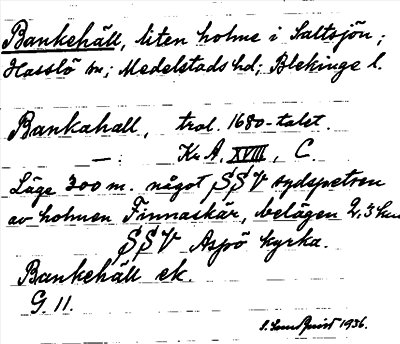 Bankehäll, liten holme i Saltsjön;
Hasslö sn; Medelstads hd; Blekinge l.
Bankahall, trol. 1680-talet.
— : Kr A, XVIII, C.
Läge 300 m. något SSV sydspetsen
av holmen Finnaskär, belägen 2,3 km
SSV Aspö kyrka.
Bankehäll ek.
G. 11.
S. Sundquist 1936.